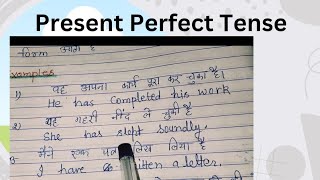 Present Perfect Tense
form आता है
xamples
1) वह अपना कार्य पूरा कर चुका है।
He has completed his work
2) वह गहरी नींद ले चुकी है
She has slept soundly.
3 मैंने एक पत्र लिख लिया है
I have itten a letter.